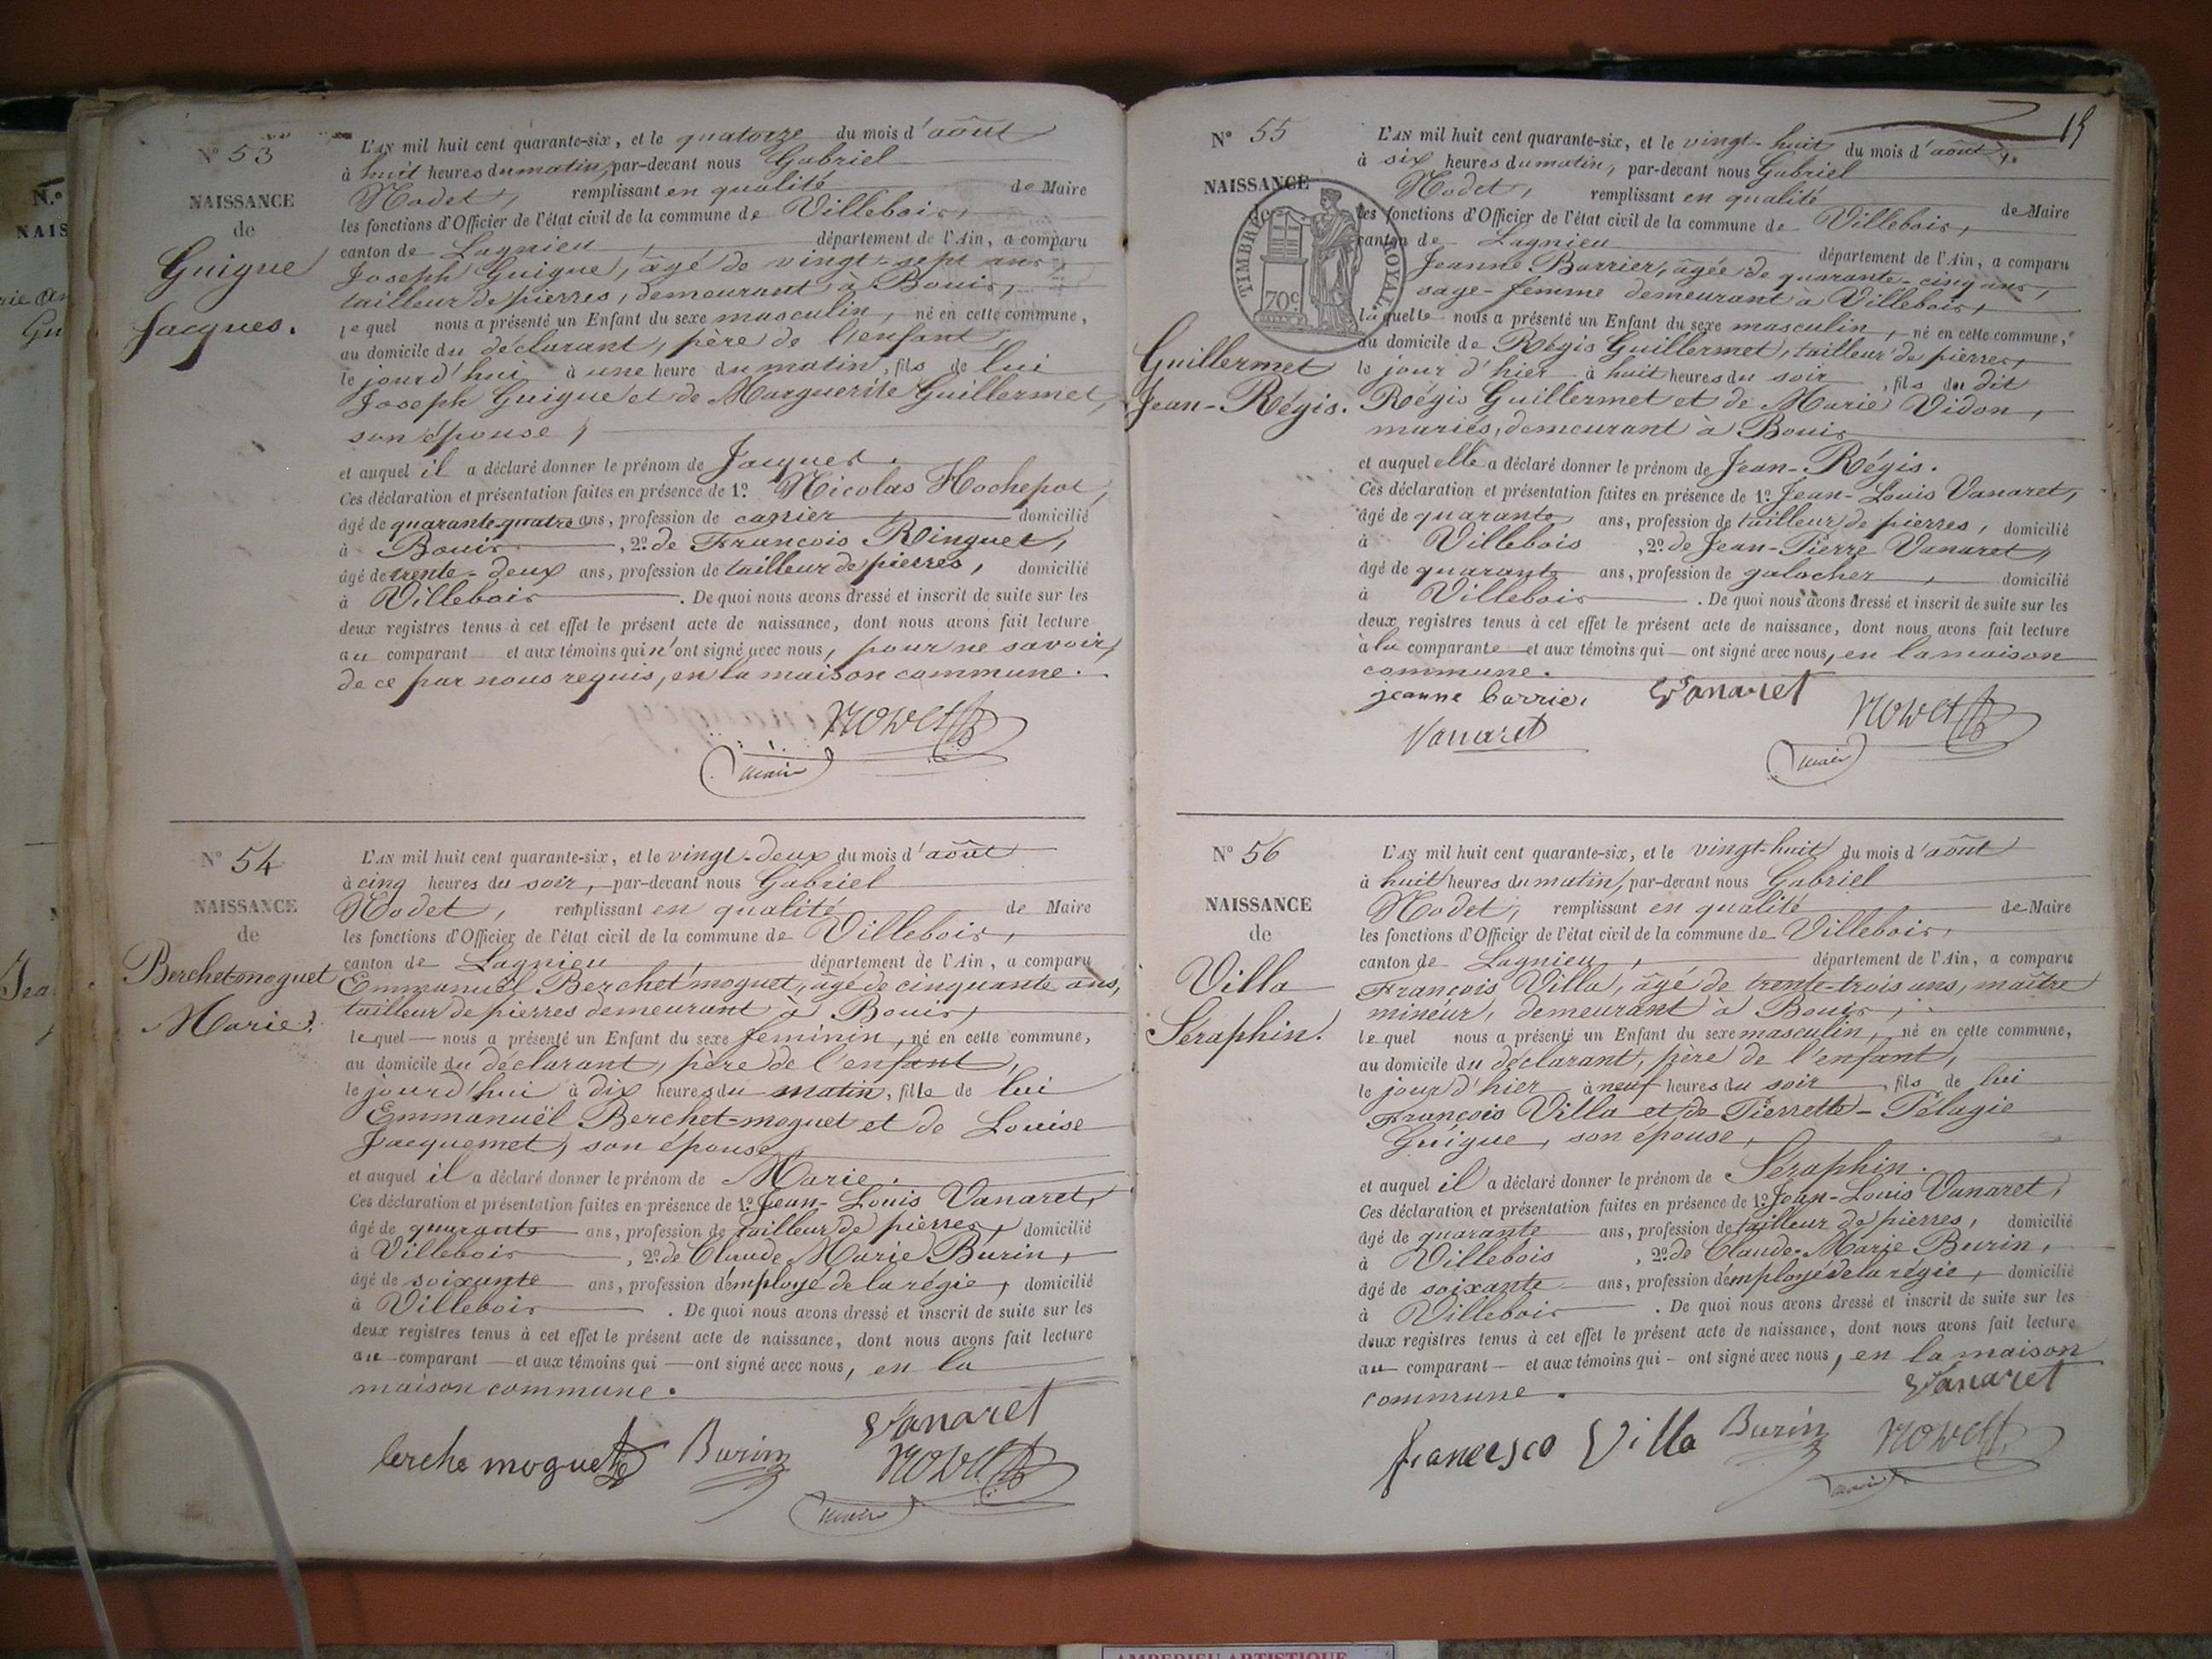 N° 53
NAISSANCE
de
Guigue
Jacques.
L'AN mil huit cent quarante-six, et le quatorze du mois d'août
à huit heures du matin, par-devant nous Gabriel
Nodet, remplissant en qualité de Maire
les fonctions d'Officier de l'état civil de la commune de Villebois,
canton de Lagnieu, département de l'Ain, a comparu
Joseph Guigue, âgé de vingt-sept ans,
tailleur de pierres, demeurant à Bouis,
lequel nous a présenté un Enfant du sexe masculin, né en cette commune,
au domicile du déclarant, père de l'enfant,
le jourd'hui à une heure du matin, fils de lui
Joseph Guigue et de Marguerite Guillermet,
son épouse,
et auquel il a déclaré donner le prénom de Jacques.
Ces déclaration et présentation faites en présence de 1° Nicolas Hochepot,
âgé de quarante-quatre ans, profession de carrier domicilié
à Bouis, 2° de François Ringuet,
âgé de trente-deux ans, profession de tailleur de pierres, domicilié
à Villebois. De quoi nous avons dressé et inscrit de suite sur les
deux registres tenus à cet effet le présent acte de naissance, dont nous avons fait lecture
au comparant et aux témoins qui n'ont signé avec nous, pour ne savoir,
de ce par nous requis, en la maison commune.
Nodet
maire
N° 54
NAISSANCE
de
Berchet-moguet
Marie.
L'AN mil huit cent quarante-six, et le vingt-deux du mois d'août
à cinq heures du soir, par-devant nous Gabriel
Nodet, remplissant en qualité de Maire
les fonctions d'Officier de l'état civil de la commune de Villebois,
canton de Lagnieu, département de l'Ain, a comparu
Emmanuël Berchet-moguet, âgé de cinquante ans,
tailleur de pierres demeurant à Bouis,
lequel nous a présenté un Enfant du sexe féminin, né en cette commune,
au domicile du déclarant, père de l'enfant,
le jourd'hui à dix heures du matin, fille de lui
Emmanuël Berchet-moguet et de Louise
Jacquemet, son épouse,
et auquel il a déclaré donner le prénom de Marie.
Ces déclaration et présentation faites en présence de 1° Jean-Louis Vanaret,
âgé de quarante ans, profession de tailleur de pierres, domicilié
à Villebois, 2° de Claude Marie Burin,
âgé de soixante ans, profession d'employé de la régie, domicilié
à Villebois. De quoi nous avons dressé et inscrit de suite sur les
deux registres tenus à cet effet le présent acte de naissance, dont nous avons fait lecture
au comparant et aux témoins qui ont signé avec nous, en la
maison commune.
Vanaret
berche moguet Burin Nodet
maire
15
N° 55
NAISSANCE
de
TIMBRE ROYAL
70c
Guillermet
Jean-Régis.
L'AN mil huit cent quarante-six, et le vingt-huit du mois d'août,
à six heures du matin, par-devant nous Gabriel
Nodet, remplissant en qualité de Maire
les fonctions d'Officier de l'état civil de la commune de Villebois,
canton de Lagnieu département de l'Ain, a comparu
Jeanne Barrier, âgée de quarante-cinq ans,
sage-femme demeurant à Villebois,
laquelle nous a présenté un Enfant du sexe masculin, né en cette commune,
au domicile de Régis Guillermet, tailleur de pierres,
le jour d'hier à huit heures du soir, fils du dit
Régis Guillermet et de Marie Vidon,
mariés, demeurant à Bouis
et auquel elle a déclaré donner le prénom de Jean-Régis.
Ces déclaration et présentation faites en présence de 1° Jean-Louis Vanaret,
âgé de quarante ans, profession de tailleur de pierres, domicilié
à Villebois, 2° de Jean-Pierre Vanaret,
âgé de quarante ans, profession de galocher, domicilié
à Villebois. De quoi nous avons dressé et inscrit de suite sur les
deux registres tenus à cet effet le présent acte de naissance, dont nous avons fait lecture
à la comparante et aux témoins qui ont signé avec nous, en la maison
commune.
jeanne barrier Vanaret
Vanaret Nodet
maire
N° 56
NAISSANCE
de
Villa
Séraphin.
L'AN mil huit cent quarante-six, et le vingt-huit du mois d'août
à huit heures du matin, par-devant nous Gabriel
Nodet, remplissant en qualité de Maire
les fonctions d'Officier de l'état civil de la commune de Villebois,
canton de Lagnieu, département de l'Ain, a comparu
François Villa, âgé de trente-trois ans, maître
mineur, demeurant à Bouis,
lequel nous a présenté un Enfant du sexe masculin, né en cette commune,
au domicile du déclarant, père de l'enfant,
le jour d'hier à neuf heures du soir, fils de lui
François Villa et de Pierrette-Pélagie
Guigue, son épouse,
et auquel il a déclaré donner le prénom de Séraphin.
Ces déclaration et présentation faites en présence de 1° Jean-Louis Vanaret,
âgé de quarante ans, profession de tailleur de pierres, domicilié
à Villebois, 2° de Claude-Marie Burin,
âgé de soixante ans, profession d'employé de la régie, domicilié
à Villebois. De quoi nous avons dressé et inscrit de suite sur les
deux registres tenus à cet effet le présent acte de naissance, dont nous avons fait lecture
au comparant et aux témoins qui ont signé avec nous, en la maison
commune.
Vanaret
francesco Villa Burin Nodet
maire
AMBERIEU ARTISTIQUE